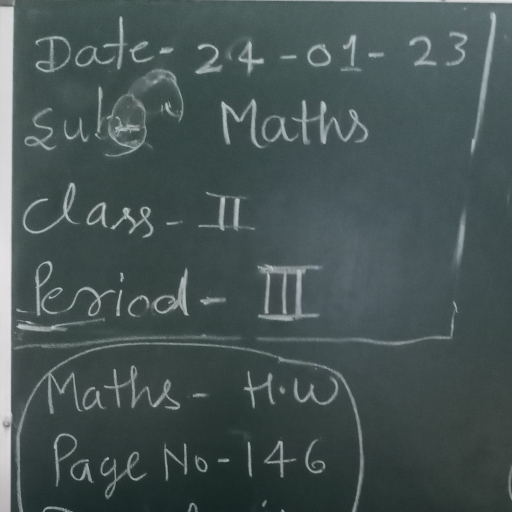 Date- 24-01-23
Sub- Maths
Class- II
Period- III
Maths- H.W
Page No-146